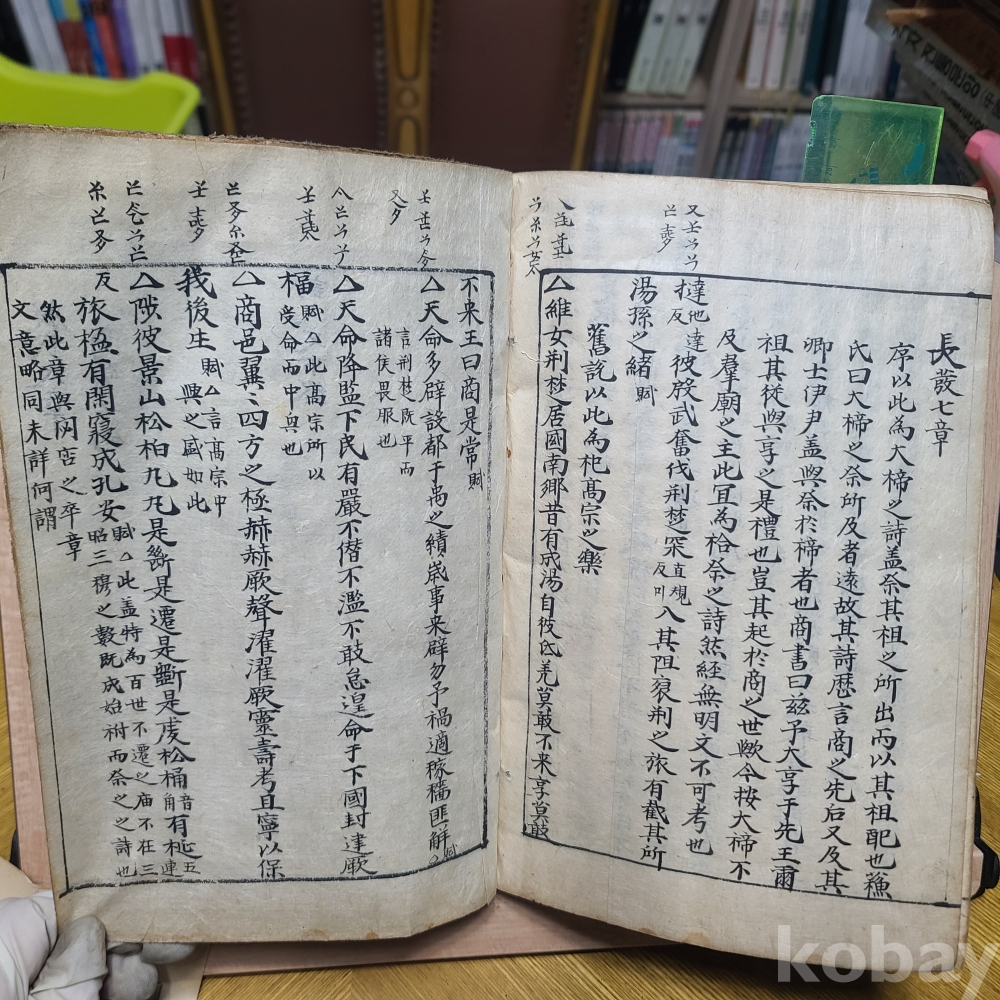 長發七章
序以此為大禘之詩盖祭其祖之所出而以其祖配也蘓
氏曰大禘之祭所及者遠故其詩歷言商之先后又及其
卿士伊尹盖與祭於禘者也商書曰兹予大享于先王爾
祖其從與享之是禮也豈其起於商之世歟今按大禘不
及羣廟之主此冝為祫祭之詩然經無明文不可考也
撻他達反彼殷武奮伐荆楚罙入其阻裒荆之旅有截其所
湯孫之緒賦
舊說以此為祀髙宗之樂
△維女荆楚居國南郷昔有成湯自彼氐羌莫敢不来享莫敢
不来王曰商是常賦
△天命多辟設都于禹之績歲事来辟勿予禍適稼穡匪解賦
言荆楚既平而
諸侯畏服也
△天命降監下民有嚴不僣不濫不敢怠遑命于下國封建厥
福賦△此髙宗所以
受命而中興也
△商邑翼〻四方之極赫赫厥聲濯濯厥靈壽考且寧以保
我後生賦△言髙宗中
興之盛如此
△陟彼景山松柏丸丸是斷是遷是斲是虔松桷音角有梴五連
反旅楹有閑寢成孔安賦△此盖特為百世不遷之庙不在三
昭三穆之數既成始祔而祭之之詩也
然此章與閟宮之卒章
文意略同未詳何謂
kobay